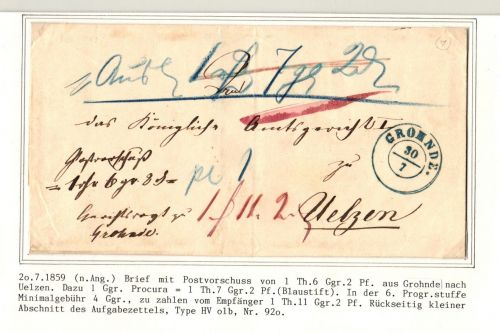 "Ausl. 1 rh 7 gr 2 d
An
das Königliche Amtsgericht I
GROHNDE.
30
7
Postvorschuß
zu
= 1 rh 6 gr 2 d =
pr 1
1. f 11. 2.
Uelzen
Gerichtsvogt zu
Grohnde.
2o.7.1859 (n.Ang.) Brief mit Postvorschuss von 1 Th.6 Ggr.2 Pf. aus Grohnde nach
Uelzen. Dazu 1 Ggr. Procura = 1 Th.7 Ggr.2 Pf.(Blaustift). In der 6. Progr.stuffe
Minimalgebühr 4 Ggr., zu zahlen vom Empfänger 1 Th.11 Ggr.2 Pf. Rückseitig kleiner
Abschnitt des Aufgabezettels, Type HV olb, Nr. 92o.